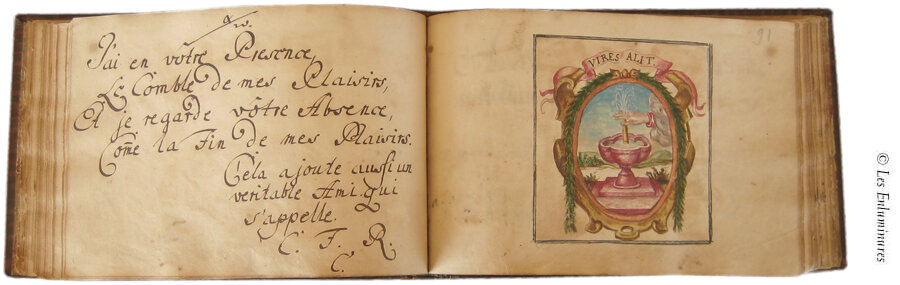 J'ai en vôtre Presence,
Le Comble de mes Plaisirs,
Et je regarde vôtre Absence,
Com̃e la Fin de mes Plaisirs.
Cela ajoute aussi un
veritable Ami. qui
s'appelle.
C. F. R.
C.
VIRES ALIT.
91
© Les Enluminures